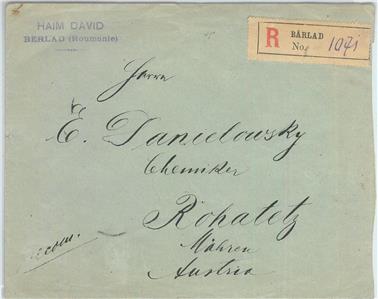 HAIM DAVID
BERLAD (Roumanie)
R BÂRLAD
No. 1071
Herrn
E. Danielowsky
Chemiker
Rohatetz
Mähren
Austria
recom.